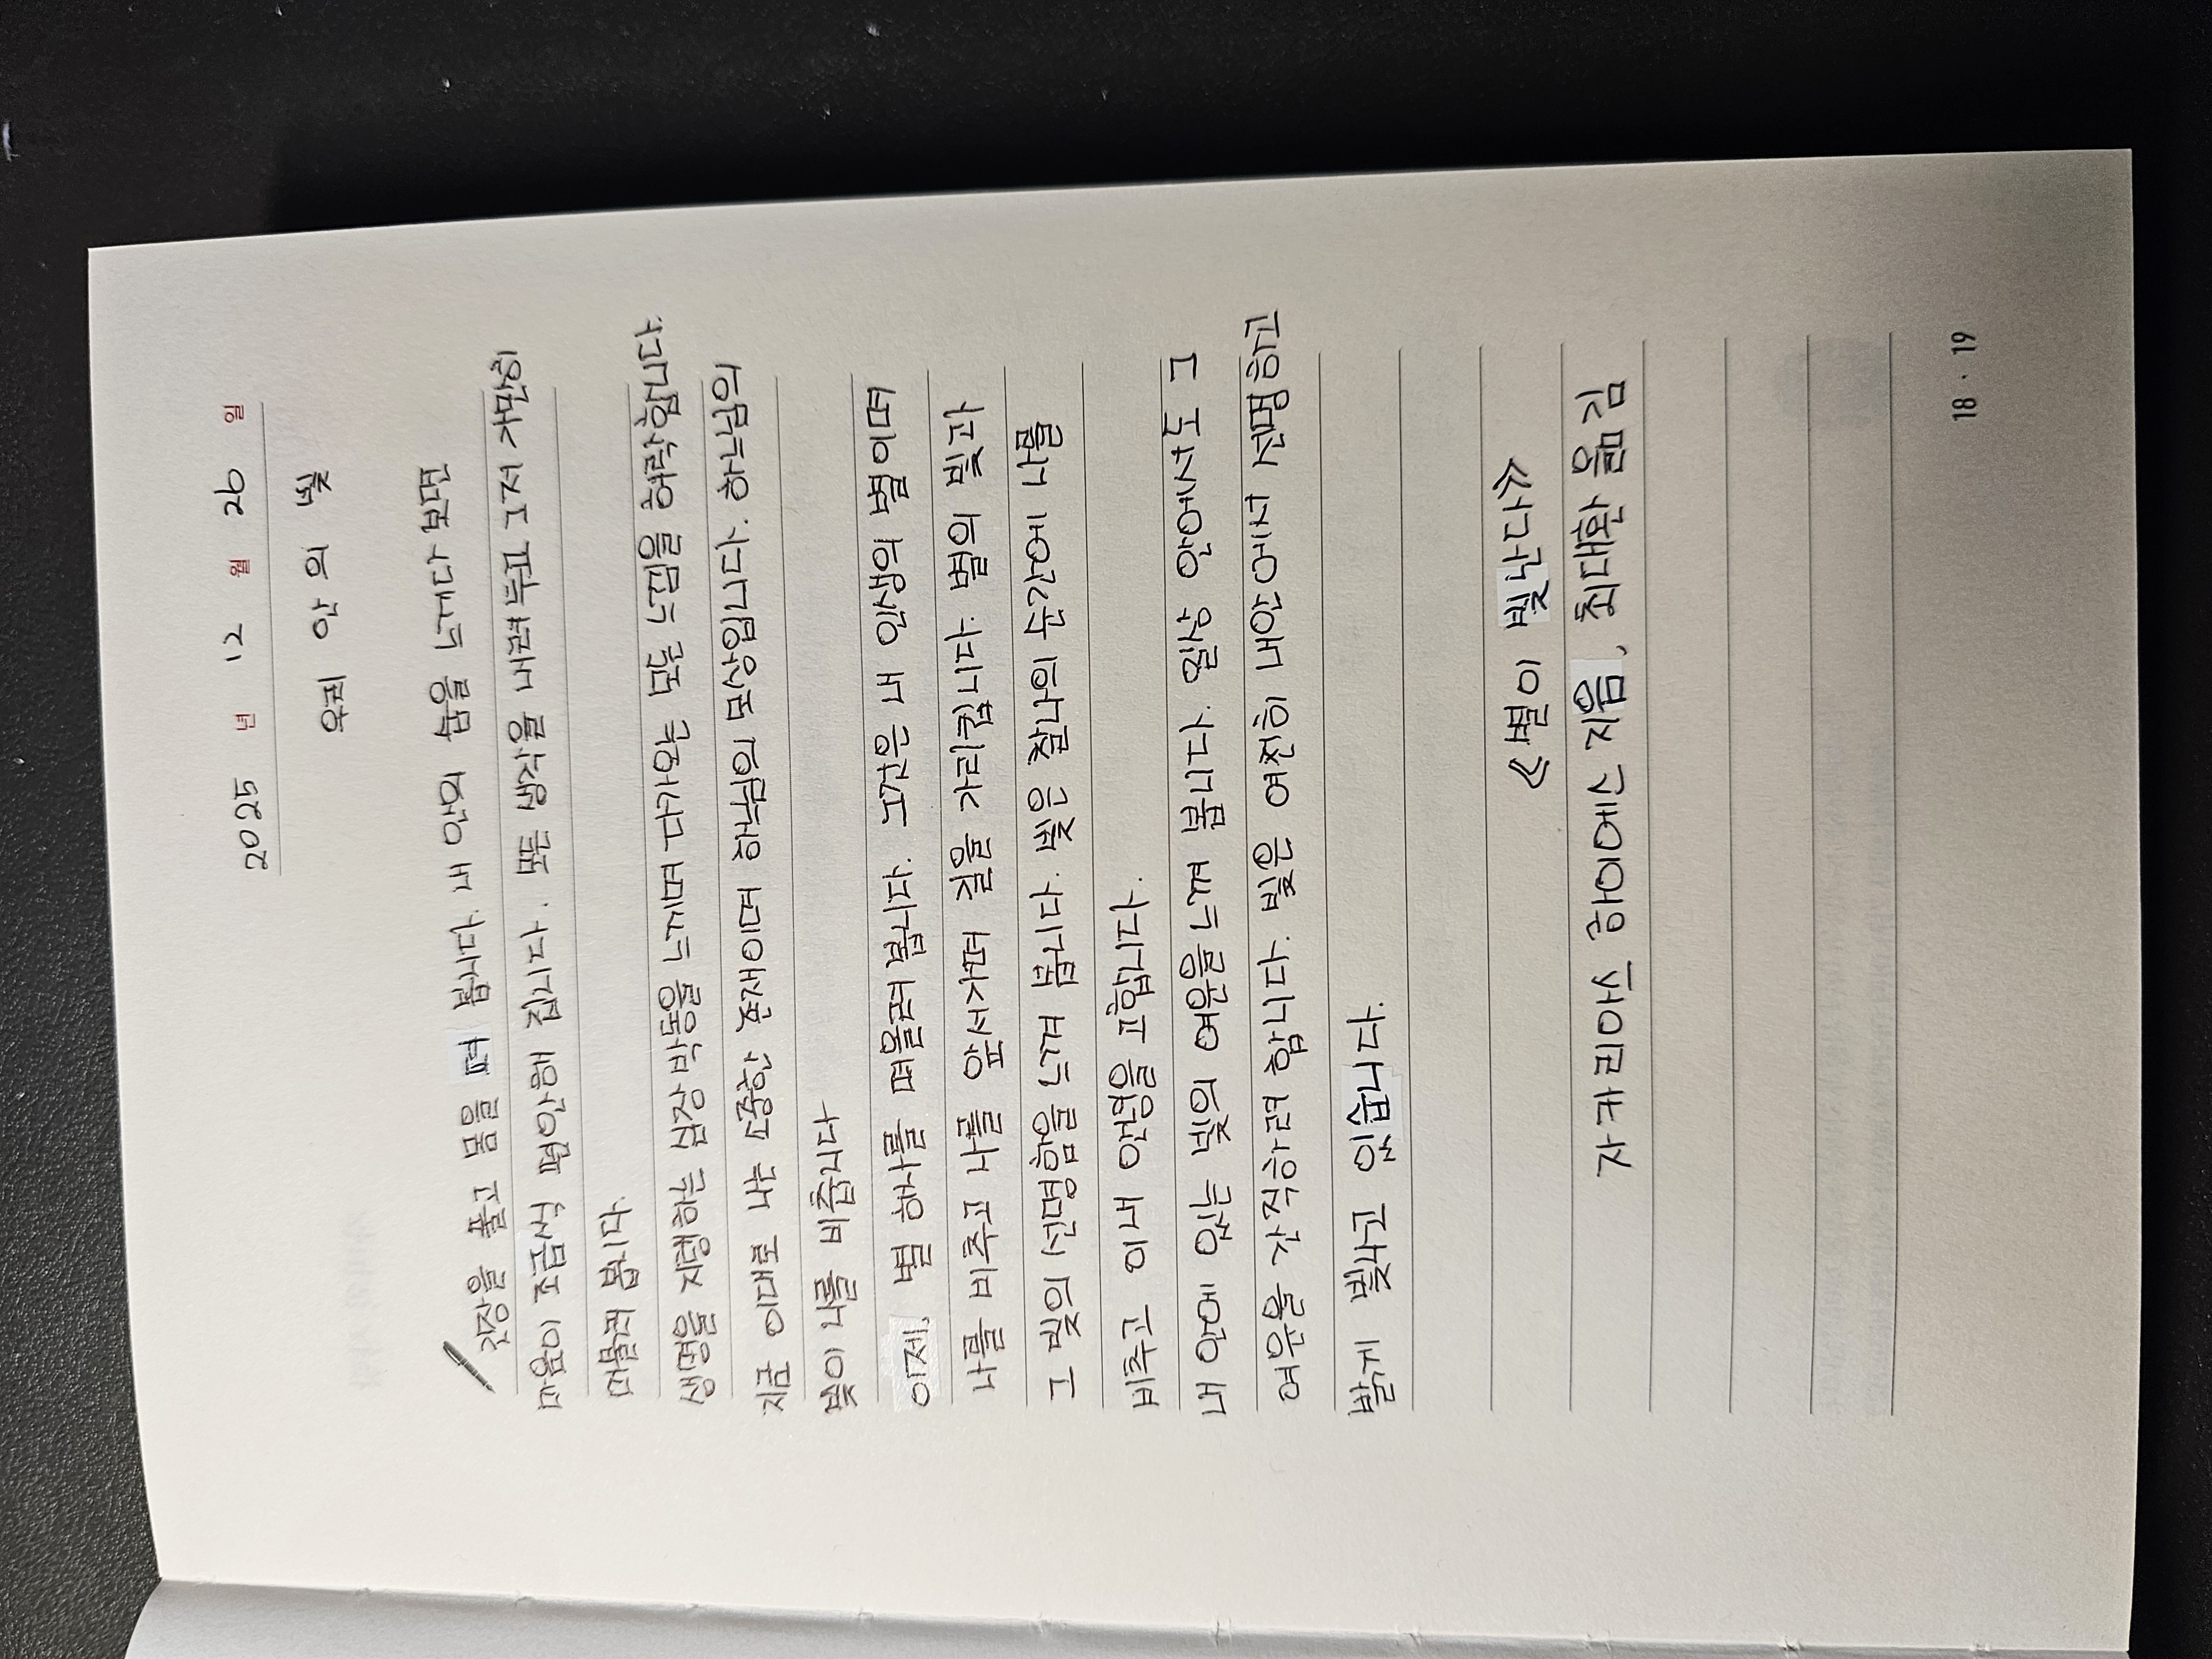 2025 년 12 월 26 일
우리 안의 빛
긴장을 풀고 몸을 펴 봅니다. 내 안의 숨을 느끼다 보면
마음이 조금씩 편안해 집니다. 모든 생각을 내려두고 그저 가만히
머물러 봅니다.
생명을 지탱하는 심장 박동을 느끼며 다가오는 모든 느낌을 허락합니다.
지금 이대로 나는 소중한 존재이며 하느님의 모상입니다. 하느님의
빛이 나를 비춥니다
이제, 별 하나를 떠올려 봅니다. 그것은 내 인생의 별이며
나를 비추고 나를 앞서가며 길을 가리킵니다. 별의 빛과
그 빛의 선명함을 느껴 봅니다. 빛은 찰나의 순간에 나를
비추고 이내 안녕을 고합니다.
내 안에 있는 빛의 여운을 느껴 봅니다. 일상 안에서도 그
여운을 간직하려 합니다. 빛은 여전히 내안에서 선명하고
밝게 빛나고 있습니다.
《별이 빛난다》
자카리아스 하이에스 지음, 최대환 옮김
18 · 19